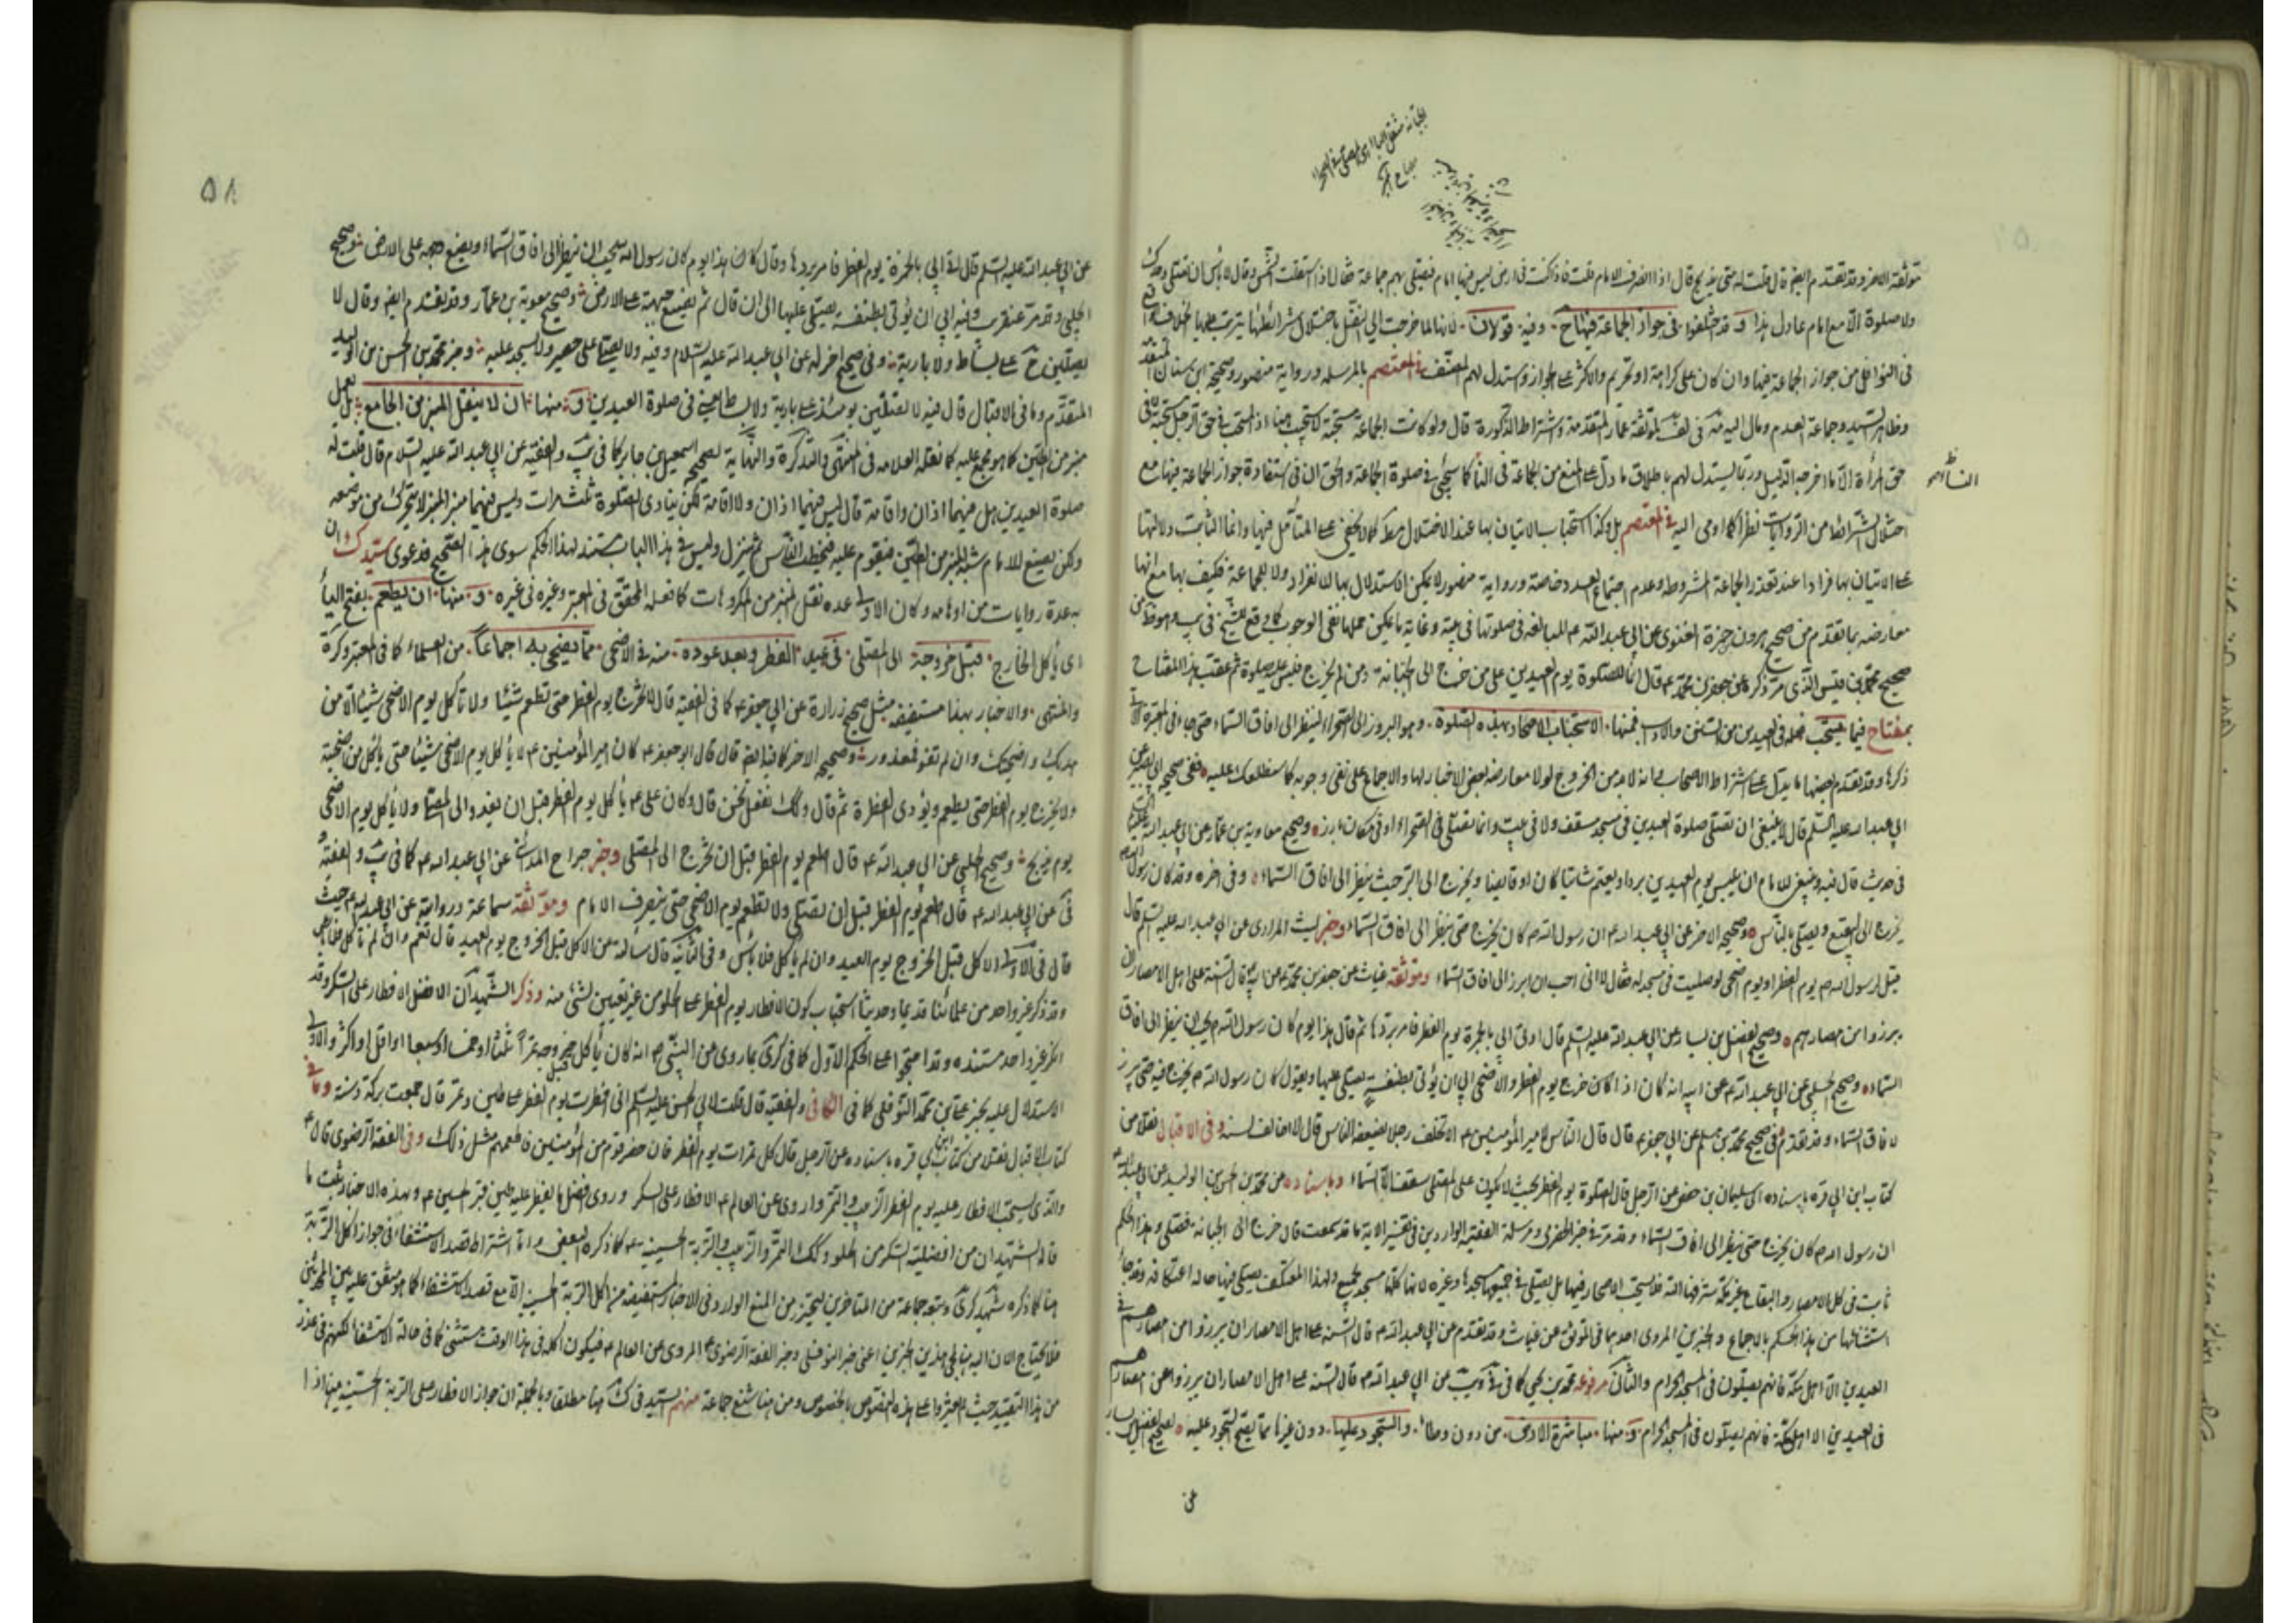 الجبانة مثقل الباء اى المصلى فى الصحراء
موثقة الاخر وقد تقدم ايضا قال قلت له متى يذبح قال اذا انصرف الامام قلت فاذا كنت فى ارض ليس فيها امام فيصلى بهم جماعة فقال اذا استقلت الشمس وقال لا بأس ان تصلى وحدك
ولا صلوة الا مع امام عادل هذا وقد اختلفوا فى جواز الجماعة فيها ح وفيه قولان لانها لما خرجت الى النفل باختلال شرائطها يترتب عليها الخلاف
فى النوافل من جواز الجماعة فيها وان كان على كراهة او تحريم والاكثر على الجواز واستدل لهم المصنف فى المعتصم بالمرسلة ورواية منصور وصحيحة ابن سنان المتقدمة
وظاهر الشهيد وجماعة العدم ومال اليه لموثقة عمار المتقدمة واشتراط الذكورة قال ولو كانت الجماعة مستحبة
حق المرأة الا ما اخرجه الدليل وربما يستدل لهم باطلاق ما دل على المنع من الجماعة فى النافلة كما سيجئ فى صلوة الجماعة والحق ان فى استفادة جواز الجماعة فيها مع
اختلال الشرائط من الروايات نظرا كما اومى اليه فى المعتصم بل وكذا استحباب الاتيان بها عند الاختلال كما لا يخفى على المتأمل فيها وانما الثابت دلالتها
على الاتيان بها فرادا عند تعذر الجماعة المشروطة وعدم اجتماع العدد خاصة ورواية منصور لا يمكن الاستدلال بها لا انفرادا ولا للجماعة فكيف بها مع انها
معارضة بما تقدم من صحيح هرون بن حمزة الغنوى عن ابى عبد الله ع المبالغة فى صلوتها فى بيته وغاية ما يمكن حملها نفى الوجوب
صحيح محمد بن قيس الذى مر ذكره عن جعفر بن محمد ع قال انما الصلوة يوم العيدين على من خرج الى الجبانة ومن لم يخرج فليس عليه صلوة ثم عقب هذا المفتاح
بمفتاح فيما يستحب فعله فى العيدين من السنن والاداب فمنها الاستحباب الاصحار بهذه الصلوة وهو البروز الى الصحراء لينظر الى افاق السماء
ذكرها وقد تقدم بعضها ما يدل على اشتراط الاصحاب بانه لا بد من الخروج لولا معارضة بعض الاخبار لها والاجماع على نفى وجوبه كما سنطلعك عليه ففى صحيح
ابى عبد الله عليه السلم قال لا ينبغى ان تصلى صلوة العيدين فى مسجد مسقف ولا فى بيت وانما تصلى فى الصحراء او فى مكان بارز وصحيح معاوية بن عمار عن ابى عبد الله
فى حديث قال فيه وينبغى للامام ان يلبس يوم العيدين بردا ويعتم شاتيا كان او قايضا ويخرج الى البر حيث ينظر الى افاق السماء وفى اخره وقد كان رسول الله
يخرج الى البقيع ويصلى بالناس وصحيحه الاخر عن ابى عبد الله ع ان رسول الله ص كان يخرج حتى ينظر الى افاق السماء وخبر ليث المرادى عن ابى عبد الله عليه السلم قال
قيل لرسول الله ص يوم الفطر او يوم اضحى لو صليت فى مسجدك فقال انى احب ان ابرز الى افاق السماء وموثقة غياث عن جعفر بن محمد ع عن ابيه قال السنة على اهل الامصار ان
يبرزوا من امصارهم وصحيح الفضيل بن يسار عن ابى عبد الله عليه السلم قال اوتى ابى بالخمرة يوم الفطر فامر بردها ثم قال هذا يوم كان رسول الله ص يحب ان ينظر الى افاق
السماء وصحيح الحلبى عن ابى عبد الله ع عن ابيه انه كان اذا كان خرج يوم الفطر والاضحى ابى ان يؤتى بطنفسة يصلى عليها ويقول كان رسول الله ص يخرج فيه حتى يبرز
لافاق السماء وقد تقدم فى صحيح محمد بن مسلم عن ابى جعفر ع قال قال الناس لامير المؤمنين ع الا تخلف رجلا بضعفة الناس قال لا اخالف السنة وفى الاقبال نقلا من
كتاب ابن ابى قره باسناده الى سليمان بن حفص عن الرجل قال الصلوة يوم الفطر بحيث لا يكون على المصلى سقف الا السماء وباسناده عن محمد بن الحسن بن الوليد عن ابى عبد الله
ان رسول الله ص كان يخرج حتى ينظر الى افاق السماء وقد مر فى خبر ومرسلة الفقيه الواردين فى تفسير الاية ما قد سمعت قال خرج الى الجبانة فصلى وهذا الحكم
ثابت فى كل الامصار والبقاع غير مكة شرفها الله فلا يستحب الاصحار فيها بل يصلى فى مسجدها وغيره لانها كلها مسجد
استثنائها من هذا الحكم بالاجماع والخبرين المروى احدهما فى الموثق عن غياث وقد تقدم عن ابى عبد الله ع قال السنة على اهل الامصار ان يبرزوا من امصارهم فى
العيدين الا اهل مكة فانهم يصلون فى المسجد الحرام والثانى مرفوعة محمد بن يحيى كما فى عن ابى عبد الله ع قال السنة على اهل الامصار ان يبرزوا من امصارهم
فى العيدين الا اهل مكة فانهم يصلون فى المسجد الحرام ومنها مباشرة الارض من دون وطاء والسجود عليها دون غيرها مما يصح السجود عليه لصحيح الفضيل بن يسار
عن
٥٨
عن ابى عبد الله عليه السلم قال اتى ابى بالخمرة يوم الفطر فامر بردها وقال كان هذا يوم كان رسول الله يحب ان ينظر الى افاق السماء ويضع وجهه على الارض وصحيح
الحلبى وقد مر عنقريب وفيه ابى ان يؤتى بطنفسة يصلى عليها الى ان قال ثم يضع جبهته على الارض وصحيح معوية بن عمار وقد تقدم ايضا وقال لا
يصلين ح على بساط ولا بارية وفى صحيح اخر له عن ابى عبد الله عليه السلام وفيه ولا يصلى على حصير ولا يسجد عليه وخبر محمد بن الحسن بن الوليد
المتقدم وما فى الاقبال قال فيه لا تصلين يومئذ على بارية ولا بساط يعنى فى صلوة العيدين ومنها ان لا ينقل المنبر من الجامع بل يعمل
منبر من الطين كما هو مجمع عليه كما نقله العلامه فى المنتهى والتذكرة والنهاية لصحيح اسمعيل بن جابر كما فى يب والفقيه عن ابى عبد الله عليه السلام قال قلت له
صلوة العيدين هل فيهما اذان واقامة قال ليس فيهما اذان ولا اقامة لكن ينادى الصلوة ثلث مرات وليس فيهما منبر المنبر لا يتحرك من موضعه
ولكن يصنع للامام شبه المنبر من الطين فيقوم عليه فيخطب الناس ثم ينزل وليس فى هذا الباب مستند لهذا الحكم سوى هذا الصحيح فدعوى سيد ك ان
به عدة روايات من اوهامه وكان الاولى عده نقل المنبر من المكروهات كما فعله المحقق فى المعتبر وغيره فى غيره ومنها ان يطعم بفتح الياء
اى يأكل الخارج قبل خروجه الى المصلى فى عيد الفطر وبعد عوده منه فى الاضحى مما يضحى به اجماعا من العلماء كما فى المعتبر وكره
والمنتهى والاخبار بهذا مستفيضه مثل صحيح زرارة عن ابى جعفر ع كما فى الفقيه قال لا تخرج يوم الفطر حتى تطعم شيئا ولا تأكل يوم الاضحى شيئا الا من
هديك واضحيتك وان لم تقو فمعذور وصحيحه الاخر كما فيه ايضا قال قال ابو جعفر ع كان امير المؤمنين ع لا يأكل يوم الاضحى شيئا حتى يأكل من اضحيته
ولا يخرج يوم الفطر حتى يطعم ويؤدى الفطرة ثم قال وكذلك نفعل نحن قال وكان على ع يأكل يوم الفطر قبل ان يغدو الى المصلى ولا يأكل يوم الاضحى
يوم يذبح وصحيح الحلبى عن ابى عبد الله ع قال اطعم يوم الفطر قبل ان تخرج الى المصلى وخبر جراح المدائنى عن ابى عبد الله ع كما فى يب والفقيه
عن ابى عبد الله ع قال اطعم يوم الفطر قبل ان تصلى ولا تطعم يوم الاضحى حتى ينصرف الامام وموثقة سماعة وروايته عن ابى عبد الله ع حيث
قال فى الاولى الاكل قبل الخروج يوم العيد وان لم يأكل فلا بأس وفى الثانية قال سألته عن الاكل قبل الخروج يوم العيد قال نعم وان لم تأكل فلا بأس
وقد ذكر غير واحد من علمائنا قديما وحديثا استحباب كون الافطار يوم الفطر على الحلو من غير تعيين لشئ منه وذكر الشهيد ان الافضل الافطار على السكر وقد
انكر غير واحد مستنده وقد احتجوا على الحكم الاول كما فى كرى بما روى عن النبى ص انه كان يأكل قبل خروجه تمرات ثلثا او خمسا او سبعا او اقل او اكثر والاولى
الاستدلال عليه بخبر على بن محمد النوفلى كما فى الكافى والفقيه قال قلت لابى الحسن عليه السلم انى افطرت يوم الفطر على طين وتمر قال جمعت بركة وسنة وما فى
كتاب الاقبال نقلا من كتاب ابن ابى قره باسناده عن الرجل قال كل تمرات يوم الفطر فان حضر قوم من المؤمنين فاطعمهم مثل ذلك وفى الفقه الرضوى قال ع
والذى يستحب الافطار عليه يوم الفطر الزبيب والتمر واروى عن العالم ع الافطار على السكر وروى افضل ما يفطر عليه طين قبر الحسين ع وبهذه الاخبار ثبت ما
قاله الشهيدان من افضلية السكر من الحلو وكذلك التمر والزبيب والتربة الحسينيه كما ذكره البعض واما اشتراط قصد الاستشفاء فى جواز اكل التربة
هنا كما ذكره شهيد كرى وتبعه جماعة من المتاخرين للتحرز من المنع الوارد فى الاخبار المستفيضه من اكل التربة الحسينيه الا مع قصد الاستشفاء كما هو متفق عليه بين
فلا يحتاج الان اليه بهذين الخبرين اعنى خبر النوفلى وخبر الفقه الرضوى المروى عن العالم ع فيكون اكله فى هذا الوقت مستثنى كما فى حالة الاستشفاء لكنهم فى عذر
من هذا التقييد حيث لم يعثروا على هذه النصوص بالخصوص ومن هنا شنع جماعة منهم السيد فى ك هنا مطلقا وبالجملة ان جواز الافطار على التربة الحسينيه اذا